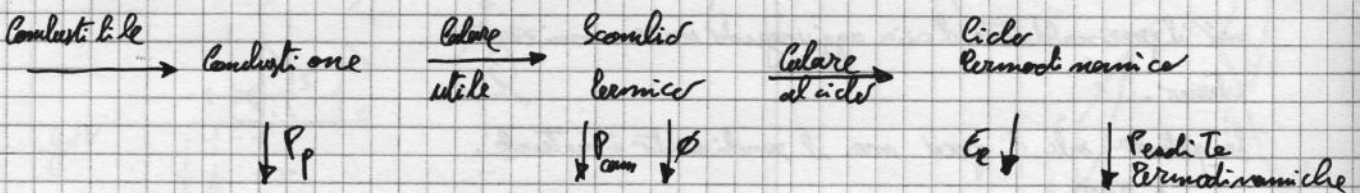 Combustibile
Combustione
Calore
utile
Scambio
termico
Calore
al ciclo
Ciclo
termodinamico
Pp
Pcam
ø
Perdite
termodinamiche